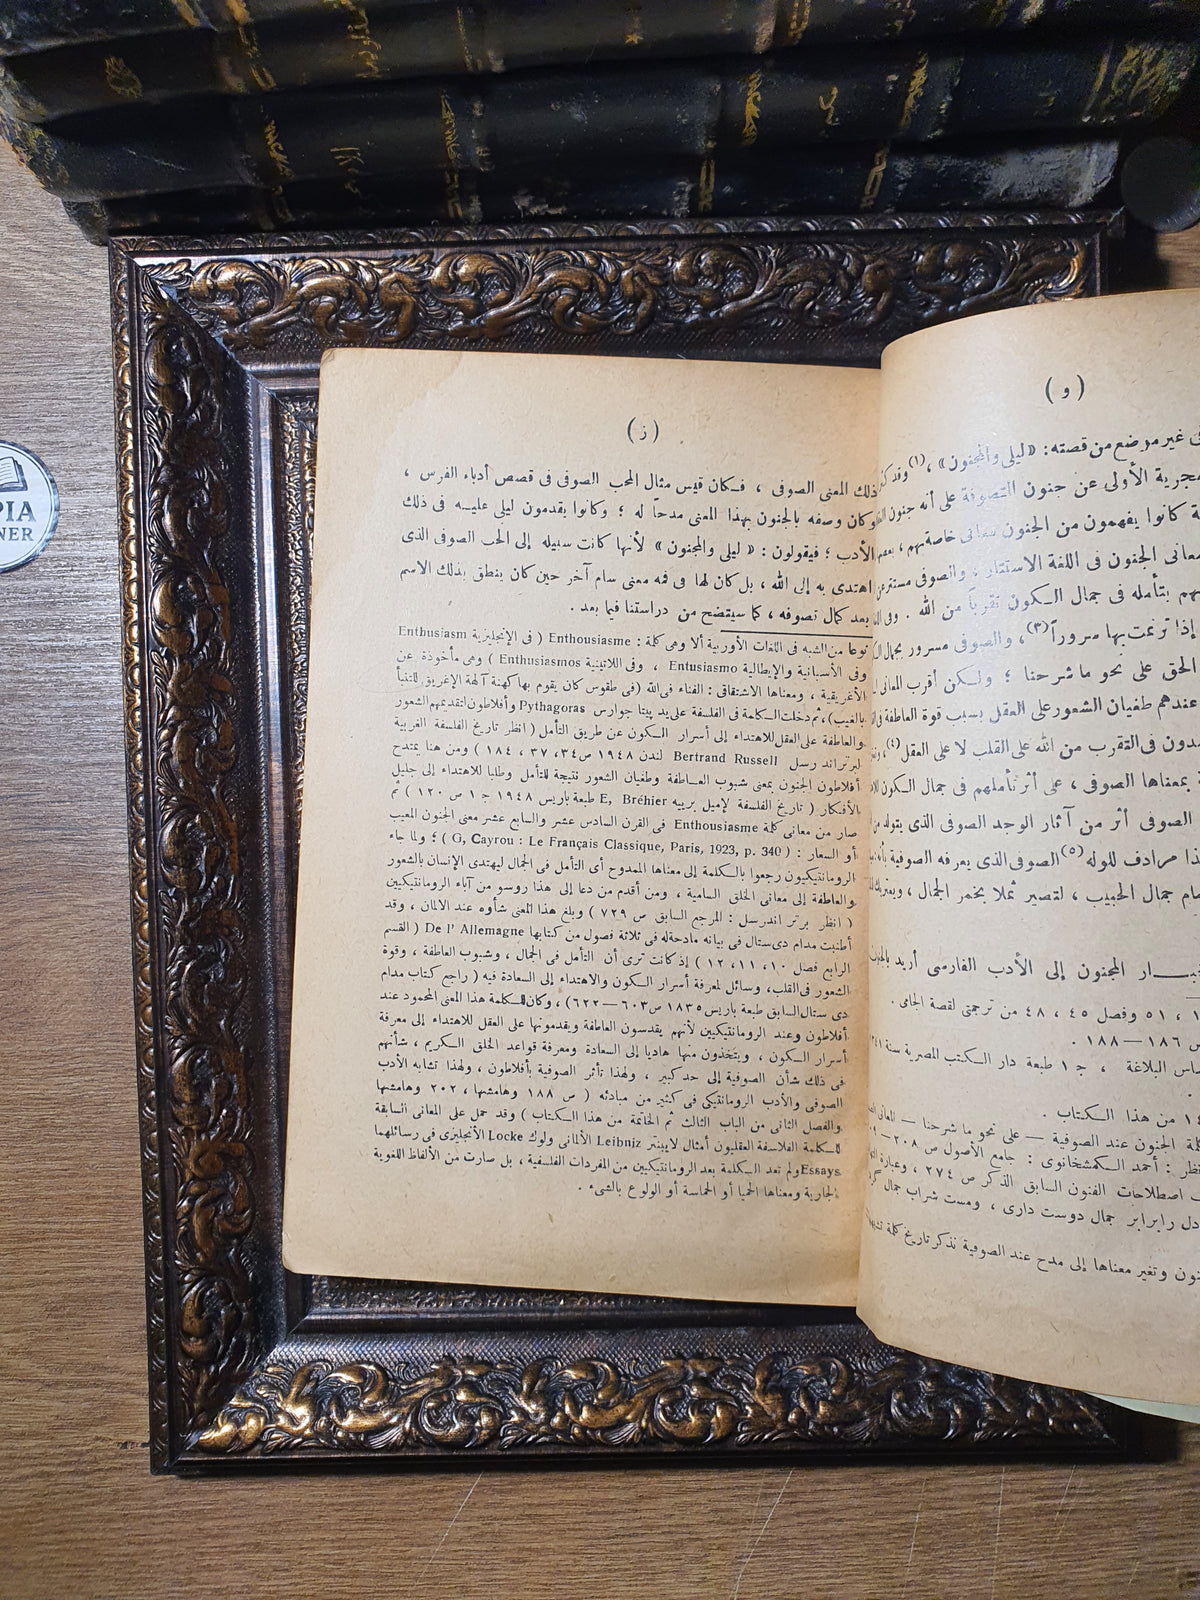 ( و )
فى غير موضع من قصته : «ليلى والمجنون» ،(١) وقد
الأولى عن جنون المتصوفة على أنه جنون
كانوا يفهمون من الجنون معانى خاصة بهم ، بعضهم
معانى الجنون فى اللغة الاستتار ، والصوفى مستتر عن
بتأمله فى جمال الكون تقرباً من الله . وفى
إذا ترنمت بها سروراً(٣) ، والصوفى مسرور بجمال
الحق على نحو ما شرحنا ؛ ولكن أقرب المعانى
عندهم طغيان الشعور على العقل بسبب قوة العاطفة
فى التقرب من الله على القلب لا على العقل(٤) ،
بمعناها الصوفى ، على أثر تأملهم فى جمال الكون
الصوفى أثر من آثار الوجد الصوفى الذى يتولد
مرادف للوله(٥) الصوفى الذى يعرفه الصوفية بأنه
جمال الحبيب ، لتصير ثملا بخمر الجمال ،
المجنون إلى الأدب الفارسى أريد
، ٥١ وفصل ٤٥ ، ٤٨ من ترجمتى لقصة الجامى .
١٨٦ — ١٨٨ .
البلاغة ، ج ١ طبعة دار الكتب المصرية سنة
من هذا الكتاب .
الجنون عند الصوفية — على نحو ما شرحنا — المعانى
: أحمد الكمشخانوى : جامع الأصول ص ٢٠٨ —
اصطلاحات الفنون السابق الذكر ص ٢٧٤ ، وعبارة
رابرابر جمال دوست دارى ، ومست شراب جمال
وتغير معناها إلى مدح عند الصوفية نذكر تاريخ كلمة
( ز )
ذلك المعنى الصوفى ، فكان قيس مثال المحب الصوفى فى قصص أدباء الفرس ،
وكان وصفه بالجنون بهذا المعنى مدحاً له ؛ وكانوا يقدمون ليلى عليه فى ذلك
الأدب ؛ فيقولون : « ليلى والمجنون » لأنها كانت سبيله إلى الحب الصوفى الذى
اهتدى به إلى الله ، بل كان لها فى فمه معنى سام آخر حين كان ينطق بذلك الاسم
بعد كمال تصوفه ، كما سيتضح من دراستنا فيما بعد .
نوعا من الشبه فى اللغات الأوربية ألا وهى كلمة : Enthousiasme ( فى الإنجليزية Enthusiasm
وفى الأسبانية والإيطالية Entusiasmo ، وفى اللاتينية Enthusiasmos ) وهى مأخوذة عن
الأغريقية ، ومعناها الاشتقاقى : الفناء فى الله ( فى طقوس كان يقوم بها كهنة آلهة الإغريق للتنبأ
بالغيب ) ، ثم دخلت الكلمة فى الفلسفة على يد پيتا جوارس Pythagoras وأفلاطون لتقديمهم الشعور
والعاطفة على العقل للاهتداء إلى أسرار الكون عن طريق التأمل ( انظر تاريخ الفلسفة الغربية
لبرتراند رسل Bertrand Russell لندن ١٩٤٨ ص ٣٤ ، ٣٧ ، ١٨٤ ) ومن هنا يمتدح
أفلاطون الجنون بمعنى شبوب العاطفة وطغيان الشعور نتيجة للتأمل وطلبا للاهتداء إلى جليل
الأفكار ( تاريخ الفلسفة لإميل بريبه E, Bréhier طبعة باريس ١٩٤٨ ج ١ ص ١٢٠ ) ثم
صار من معانى كلمة Enthousiasme فى القرن السادس عشر والسابع عشر معنى الجنون المعيب
أو السعار : ( G, Cayrou : Le Français Classique, Paris, 1923, p. 340 ) ؛ ولما جاء
الرومانتيكيون رجعوا بالكلمة إلى معناها الممدوح أى التأمل فى الجمال ليهتدى الإنسان بالشعور
والعاطفة إلى معانى الخلق السامية ، ومن أقدم من دعا إلى هذا روسو من آباء الرومانتيكيين
( انظر برتر اندرسل : المرجع السابق ص ٧٢٩ ) وبلغ هذا المعنى شأوه عند الالمان ، وقد
أطنبت مدام دى ستال فى بيانه مادحة له فى ثلاثة فصول من كتابها De l' Allemagne ( القسم
الرابع فصل ١٠ ، ١١ ، ١٢ ) إذ كانت ترى أن التأمل فى الجمال ، وشبوب العاطفة ، وقوة
الشعور فى القلب ، وسائل لمعرفة أسرار الكون والاهتداء إلى السعادة فيه ( راجع كتاب مدام
دى ستال السابق طبعة باريس ١٨٣٥ ص ٦٠٣ — ٦٢٢ ) ، وكان للكلمة هذا المعنى المحمود عند
أفلاطون وعند الرومانتيكيين لأنهم يقدسون العاطفة ويقدمونها على العقل للاهتداء إلى معرفة
أسرار الكون ، ويتخذون منها هاديا إلى السعادة ومعرفة قواعد الخلق الكريم ، شأنهم
فى ذلك شأن الصوفية إلى حد كبير ، ولهذا تأثر الصوفية بأفلاطون ، ولهذا تشابه الأدب
الصوفى والأدب الرومانتيكى فى كثير من مبادئه ( ص ١٨٨ وهامشها ، ٢٠٢ وهامشها
والفصل الثانى من الباب الثالث ثم الخاتمة من هذا الكتاب ) وقد حمل على المعانى السابقة
للكلمة الفلاسفة العقليون أمثال لايبنتز Leibniz الألمانى ولوك Locke الأنجليزى فى رسائلهما
Essays ولم تعد الكلمة بعد الرومانتيكيين من المفردات الفلسفية ، بل صارت من الألفاظ اللغوية
الجارية ومعناها الحميا أو الحماسة أو الولوع بالشىء .